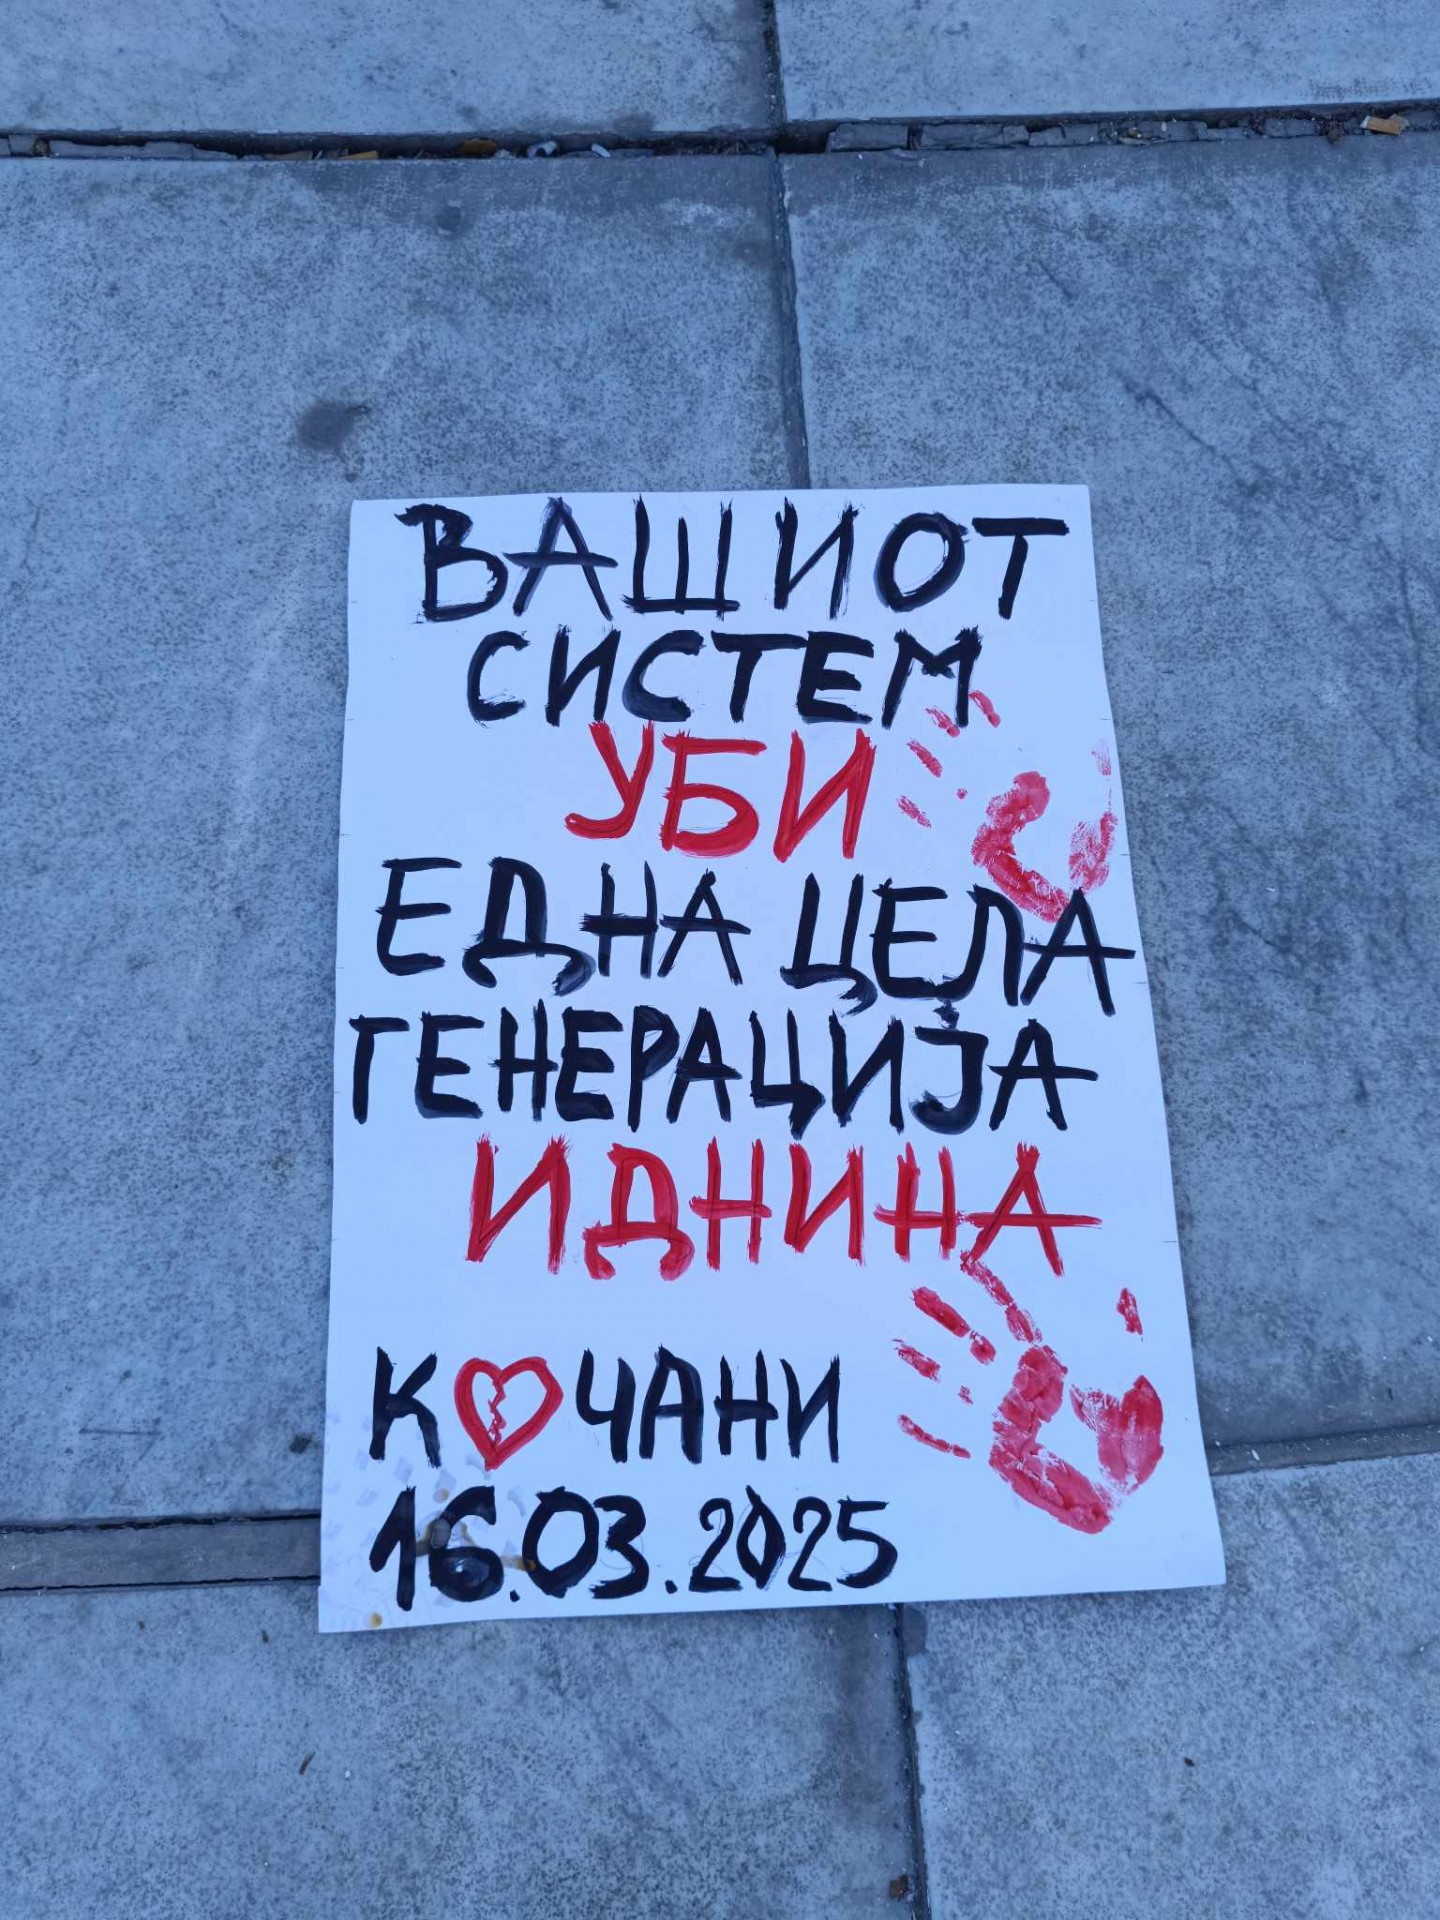 ВАШИОТ
СИСТЕМ
УБИ
ЕДНА ЦЕЛА
ГЕНЕРАЦИЈА
ИДНИНА
К❤ЧАНИ
16.03.2025